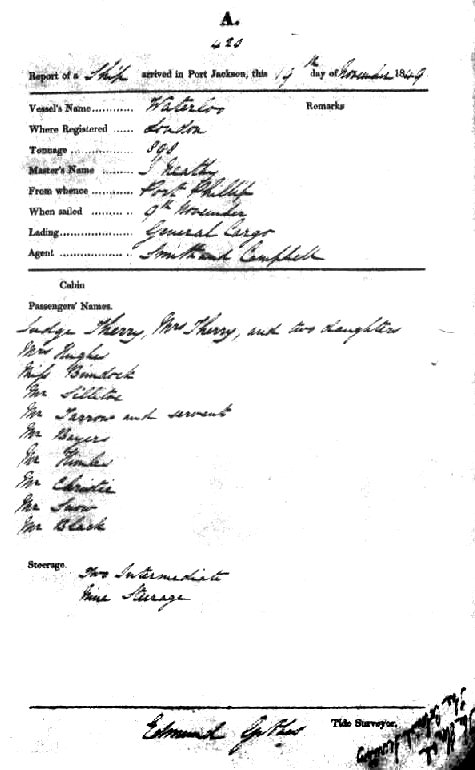 A.
420
Report of a Ship arrived in Port Jackson, this 19th day of November 1849
Vessel's Name............ Waterloo Remarks
Where Registered ...... London
Tonnage ................... 898
Master's Name ......... J Neatby
From whence ......... Port Phillip
When sailed ........... 9th November
Lading..................... General Cargo
Agent ..................... Smith and Campbell
Cabin
Passengers' Names.
Judge Therry, Mrs Therry, and two daughters
Mrs Hughes
Miss
Mr Sillitoe
Mr and servant
Mr Bayers
Mr
Mr Christie
Mr Snow
Mr Black
Steerage.
Two Intermediate
Nine Steerage
Edmund Tide Surveyor.